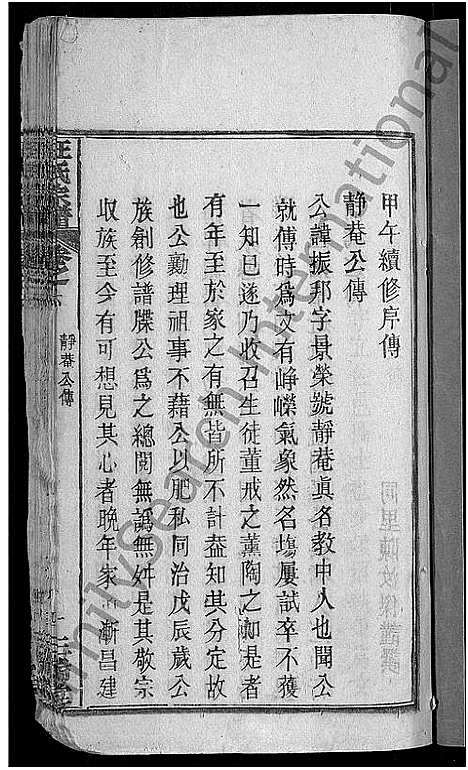 甲午續修序傳
靜菴公傳
公諱振邦字景榮號靜菴眞名教中人也聞公
就傅時爲文有崢嶸氣象然名塲屢試卒不獲
一知已遂乃收召生徒董戒之薰陶之如是者
有年至於家之有無皆所不計葢知其分定故
也公勷理祖事不藉公以肥私同治戊辰歲公
族創修譜牒公爲之總閱無譌無舛是其敬宗
収族至今有可想見其心者晚年家漸昌建
汪氏宗譜
卷之
靜菴公傳
FamilySearch International